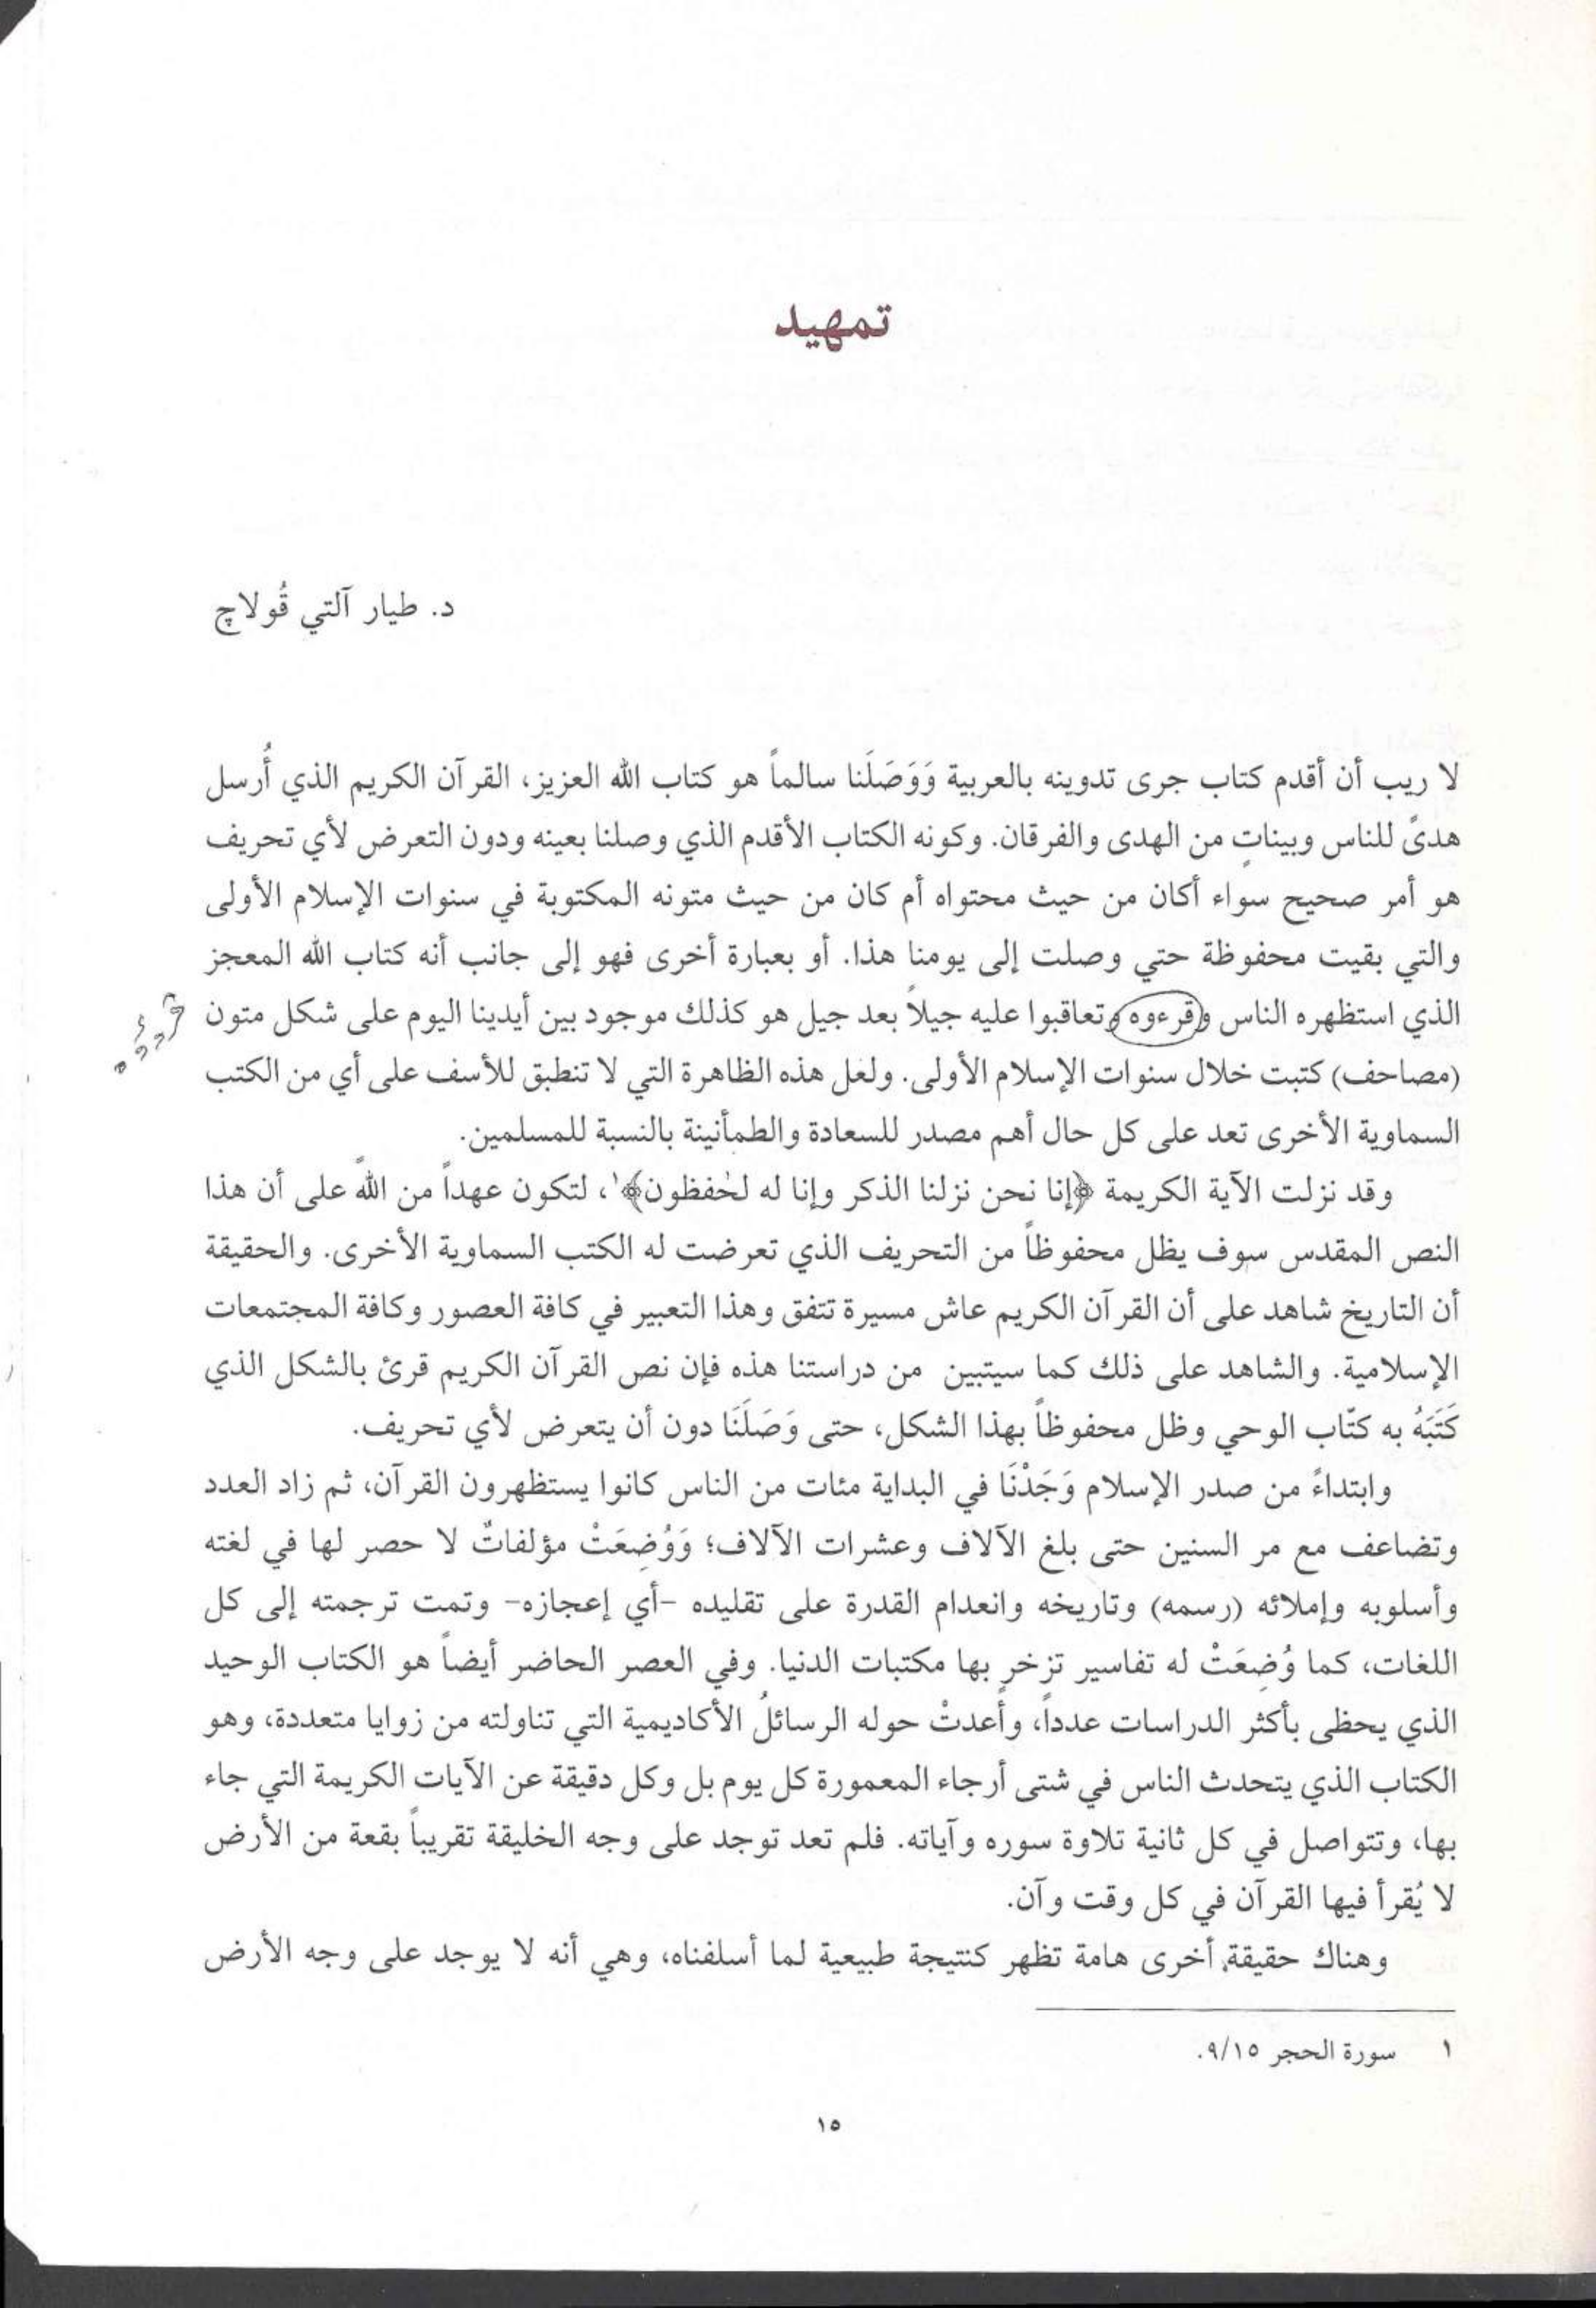 تمهيد
د. طيار آلتي قُولاچ
لا ريب أن أقدم كتاب جرى تدوينه بالعربية وَوَصَلَنا سالماً هو كتاب الله العزيز، القرآن الكريم الذي أُرسل
هدىً للناس وبيناتٍ من الهدى والفرقان. وكونه الكتاب الأقدم الذي وصلنا بعينه ودون التعرض لأي تحريف
هو أمر صحيح سواء أكان من حيث محتواه أم كان من حيث متونه المكتوبة في سنوات الإسلام الأولى
والتي بقيت محفوظة حتي وصلت إلى يومنا هذا. أو بعبارة أخرى فهو إلى جانب أنه كتاب الله المعجز
الذي استظهره الناس وقرءوه وتعاقبوا عليه جيلاً بعد جيل هو كذلك موجود بين أيدينا اليوم على شكل متون
(مصاحف) كتبت خلال سنوات الإسلام الأولى. ولعل هذه الظاهرة التي لا تنطبق للأسف على أي من الكتب
السماوية الأخرى تعد على كل حال أهم مصدر للسعادة والطمأنينة بالنسبة للمسلمين.
وقد نزلت الآية الكريمة ﴿إنا نحن نزلنا الذكر وإنا له لحٰفظون﴾١، لتكون عهداً من اللهِ على أن هذا
النص المقدس سوف يظل محفوظاً من التحريف الذي تعرضت له الكتب السماوية الأخرى. والحقيقة
أن التاريخ شاهد على أن القرآن الكريم عاش مسيرة تتفق وهذا التعبير في كافة العصور وكافة المجتمعات
الإسلامية. والشاهد على ذلك كما سيتبين من دراستنا هذه فإن نص القرآن الكريم قرئ بالشكل الذي
كَتَبَهُ به كتّاب الوحي وظل محفوظاً بهذا الشكل، حتى وَصَلَنَا دون أن يتعرض لأي تحريف.
وابتداءً من صدر الإسلام وَجَدْنَا في البداية مئات من الناس كانوا يستظهرون القرآن، ثم زاد العدد
وتضاعف مع مر السنين حتى بلغ الآلاف وعشرات الآلاف؛ وَوُضِعَتْ مؤلفاتٌ لا حصر لها في لغته
وأسلوبه وإملائه (رسمه) وتاريخه وانعدام القدرة على تقليده -أي إعجازه- وتمت ترجمته إلى كل
اللغات، كما وُضِعَتْ له تفاسير تزخر بها مكتبات الدنيا. وفي العصر الحاضر أيضاً هو الكتاب الوحيد
الذي يحظى بأكثر الدراسات عدداً، وأُعدتْ حوله الرسائلُ الأكاديمية التي تناولته من زوايا متعددة، وهو
الكتاب الذي يتحدث الناس في شتى أرجاء المعمورة كل يوم بل وكل دقيقة عن الآيات الكريمة التي جاء
بها، وتتواصل في كل ثانية تلاوة سوره وآياته. فلم تعد توجد على وجه الخليقة تقريباً بقعة من الأرض
لا يُقرأ فيها القرآن في كل وقت وآن.
وهناك حقيقة أخرى هامة تظهر كنتيجة طبيعية لما أسلفناه، وهي أنه لا يوجد على وجه الأرض
١ سورة الحجر ٩/١٥.
١٥